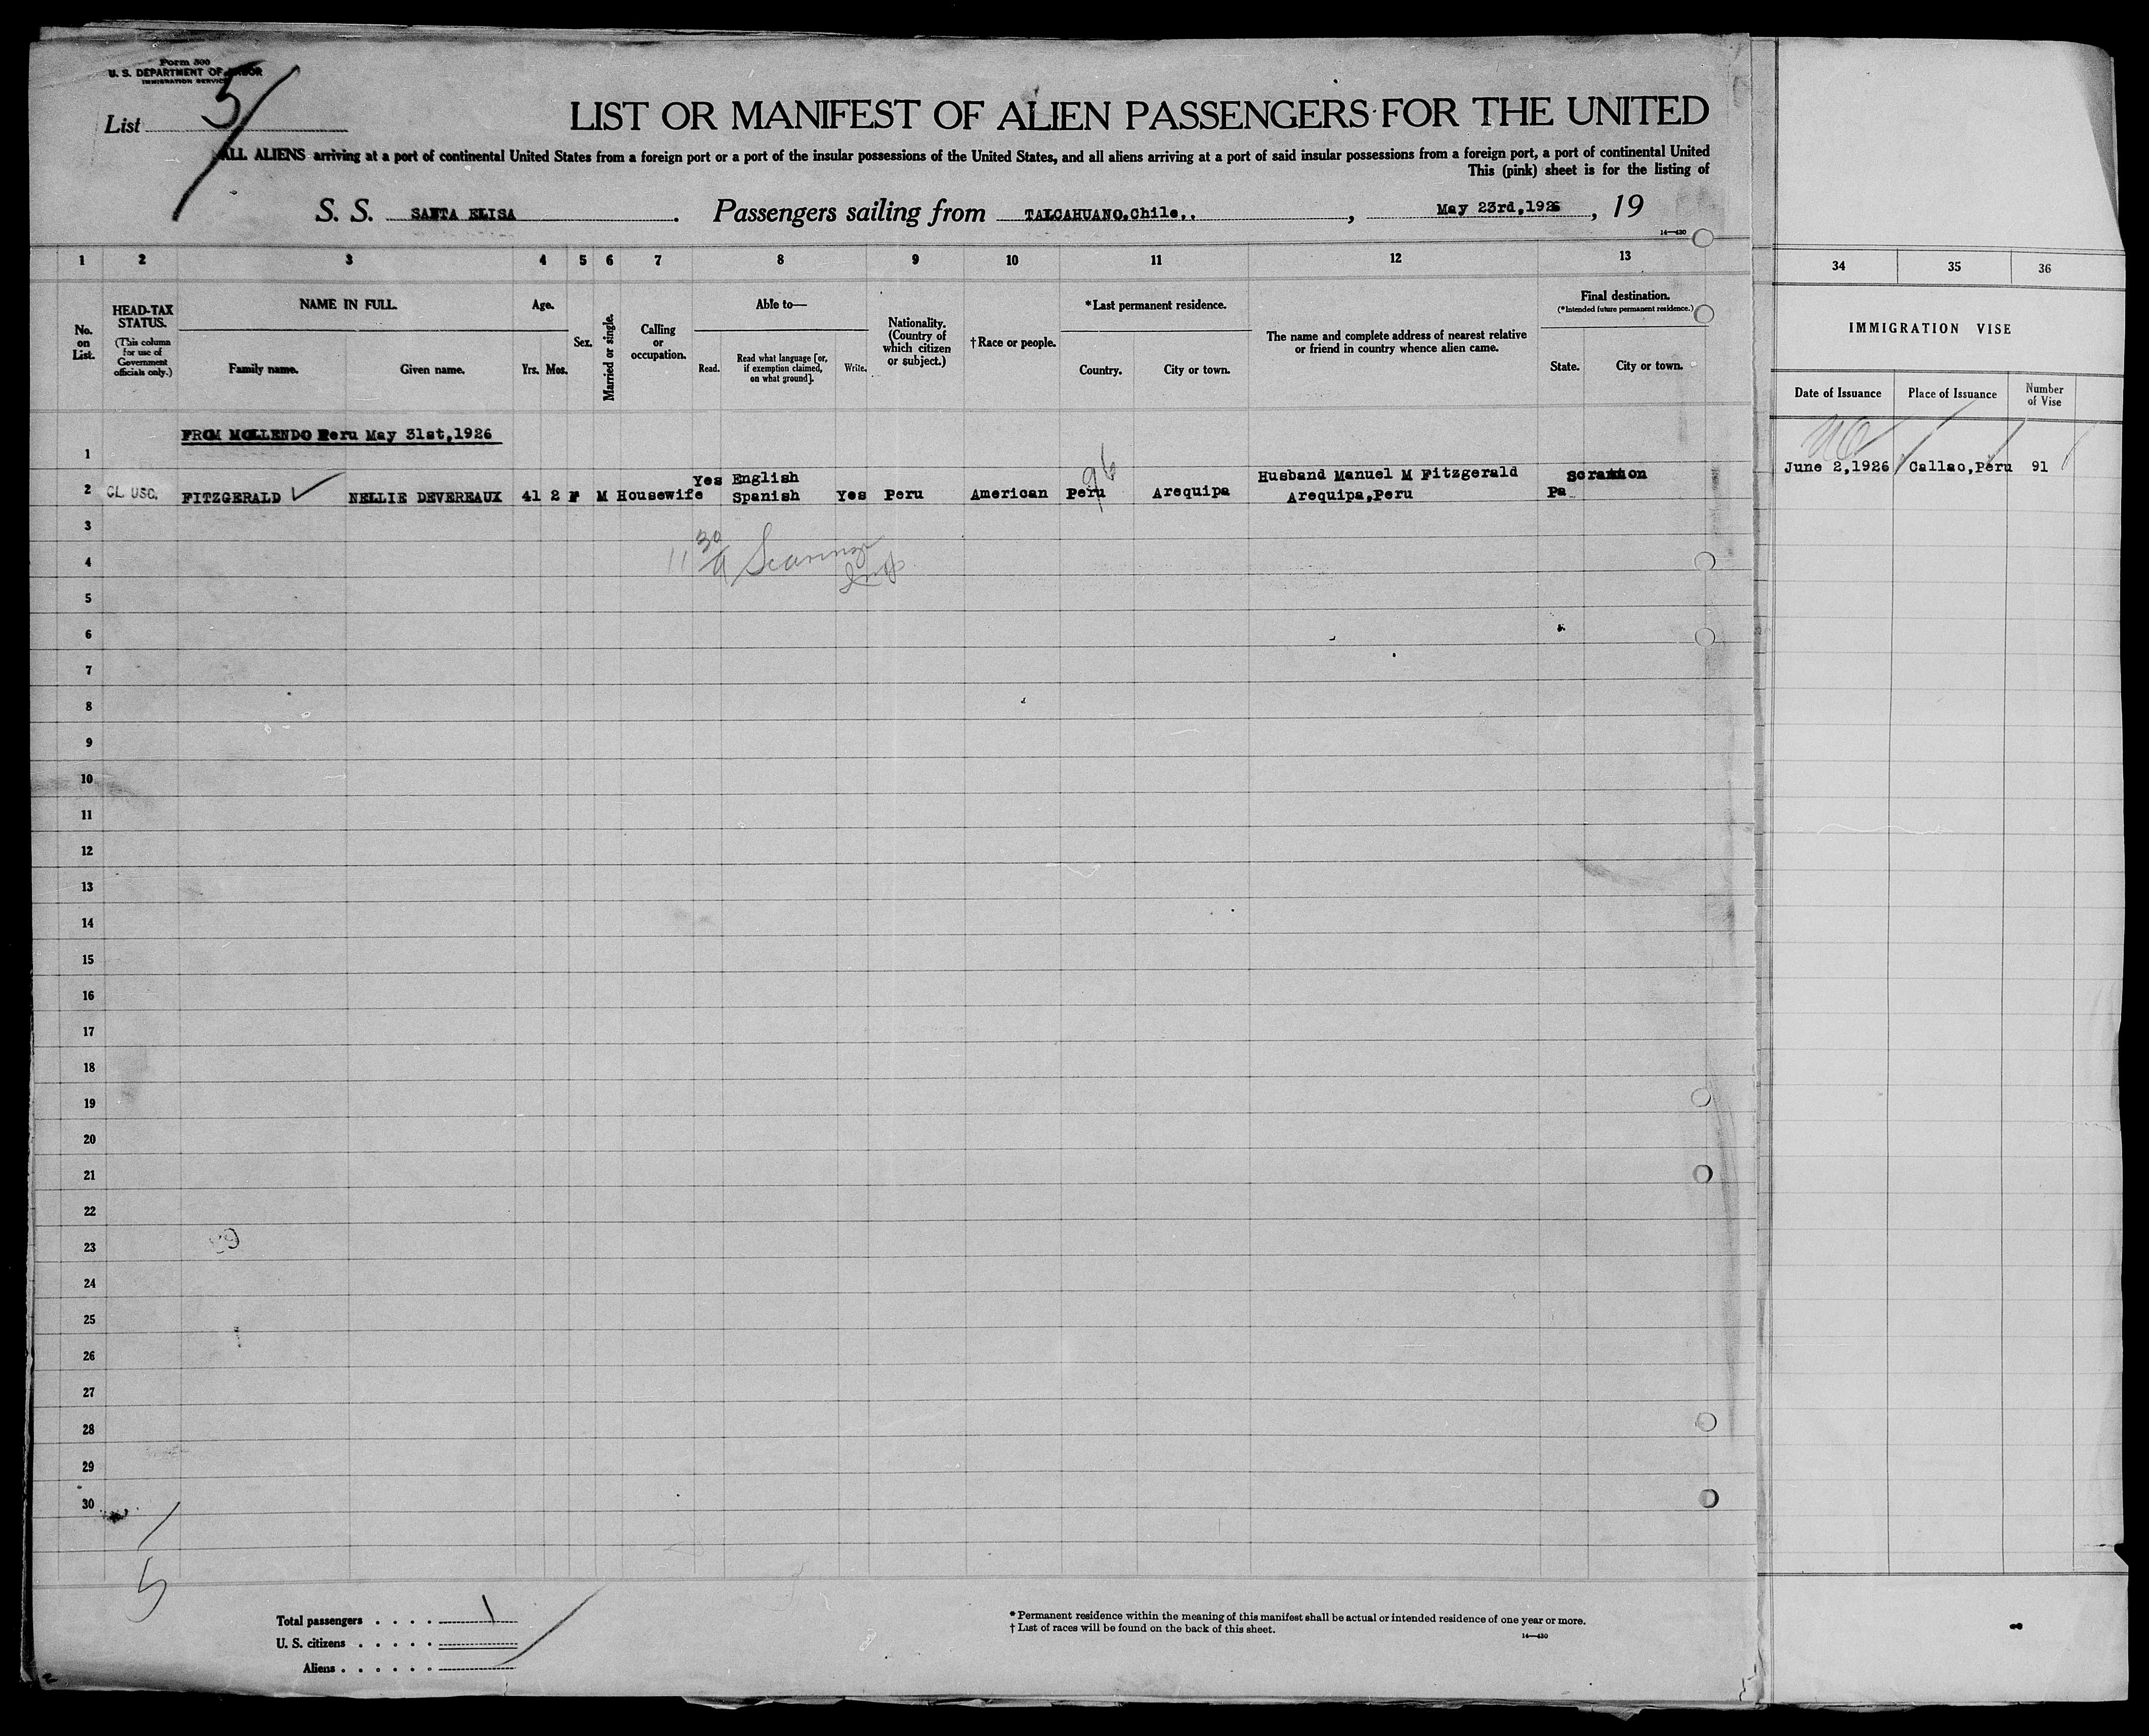 Form 500
U. S. DEPARTMENT OF LABOR
IMMIGRATION SERVICE
List 5
LIST OR MANIFEST OF ALIEN PASSENGERS FOR THE UNITED
ALL ALIENS arriving at a port of continental United States from a foreign port or a port of the insular possessions of the United States, and all aliens arriving at a port of said insular possessions from a foreign port, a port of continental United
This (pink) sheet is for the listing of
S. S. SANTA ELISA. Passengers sailing from TALCAHUANO.Chile.., May 23rd,1926, 19
14—430
1 2 3 4 5 6 7 8 9 10 11 12 13
34 35 36
No. on List.
HEAD-TAX STATUS.
(This column for use of Government officials only.)
NAME IN FULL.
Family name. Given name.
Age.
Yrs. Mos.
Sex.
Married or single.
Calling or occupation.
Able to—
Read. Read what language [or, if exemption claimed, on what ground]. Write.
Nationality. (Country of which citizen or subject.)
†Race or people.
*Last permanent residence.
Country. City or town.
The name and complete address of nearest relative or friend in country whence alien came.
Final destination.
(*Intended future permanent residence.)
State. City or town.
IMMIGRATION VISE
Date of Issuance Place of Issuance Number of Vise
FROM MOLLENDO Peru May 31st,1926
1
2 CL. USC. FITZGERALD NELLIE DEVEREAUX 41 2 F M Housewife Yes English Spanish Yes Peru American Peru Arequipa Husband Manuel M Fitzgerald Arequipa,Peru Pa Scranton June 2,1926 Callao,Peru 91
96
3
11 30
4
5
6
7
8
9
10
11
12
13
14
15
16
17
18
19
20
21
22
23
24
25
26
27
28
29
30
5
Total passengers . . . . 1
U. S. citizens . . . . .
Aliens . . . . . .
* Permanent residence within the meaning of this manifest shall be actual or intended residence of one year or more.
† List of races will be found on the back of this sheet.
14—430